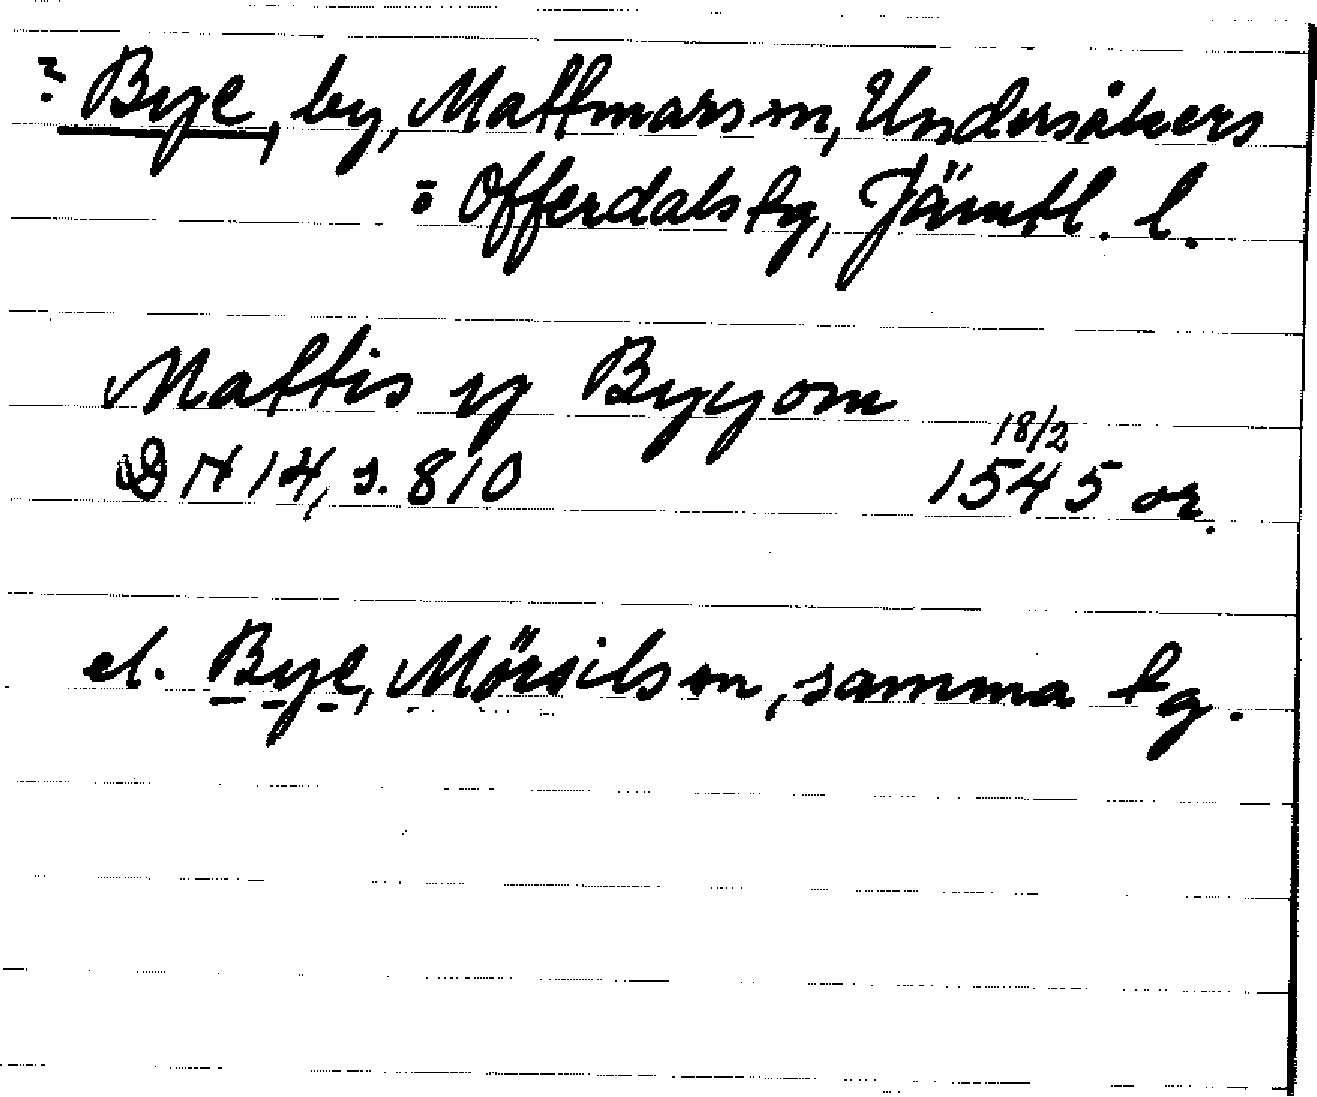 ? Bye, by, Mattmars sn, Undersåkers
o Offerdals tg, Jämtl. l.
Mattis y Byyom
DN 14, s. 810 18/2 1545 or.
el. Bye, Mörsils sn, samma tg.